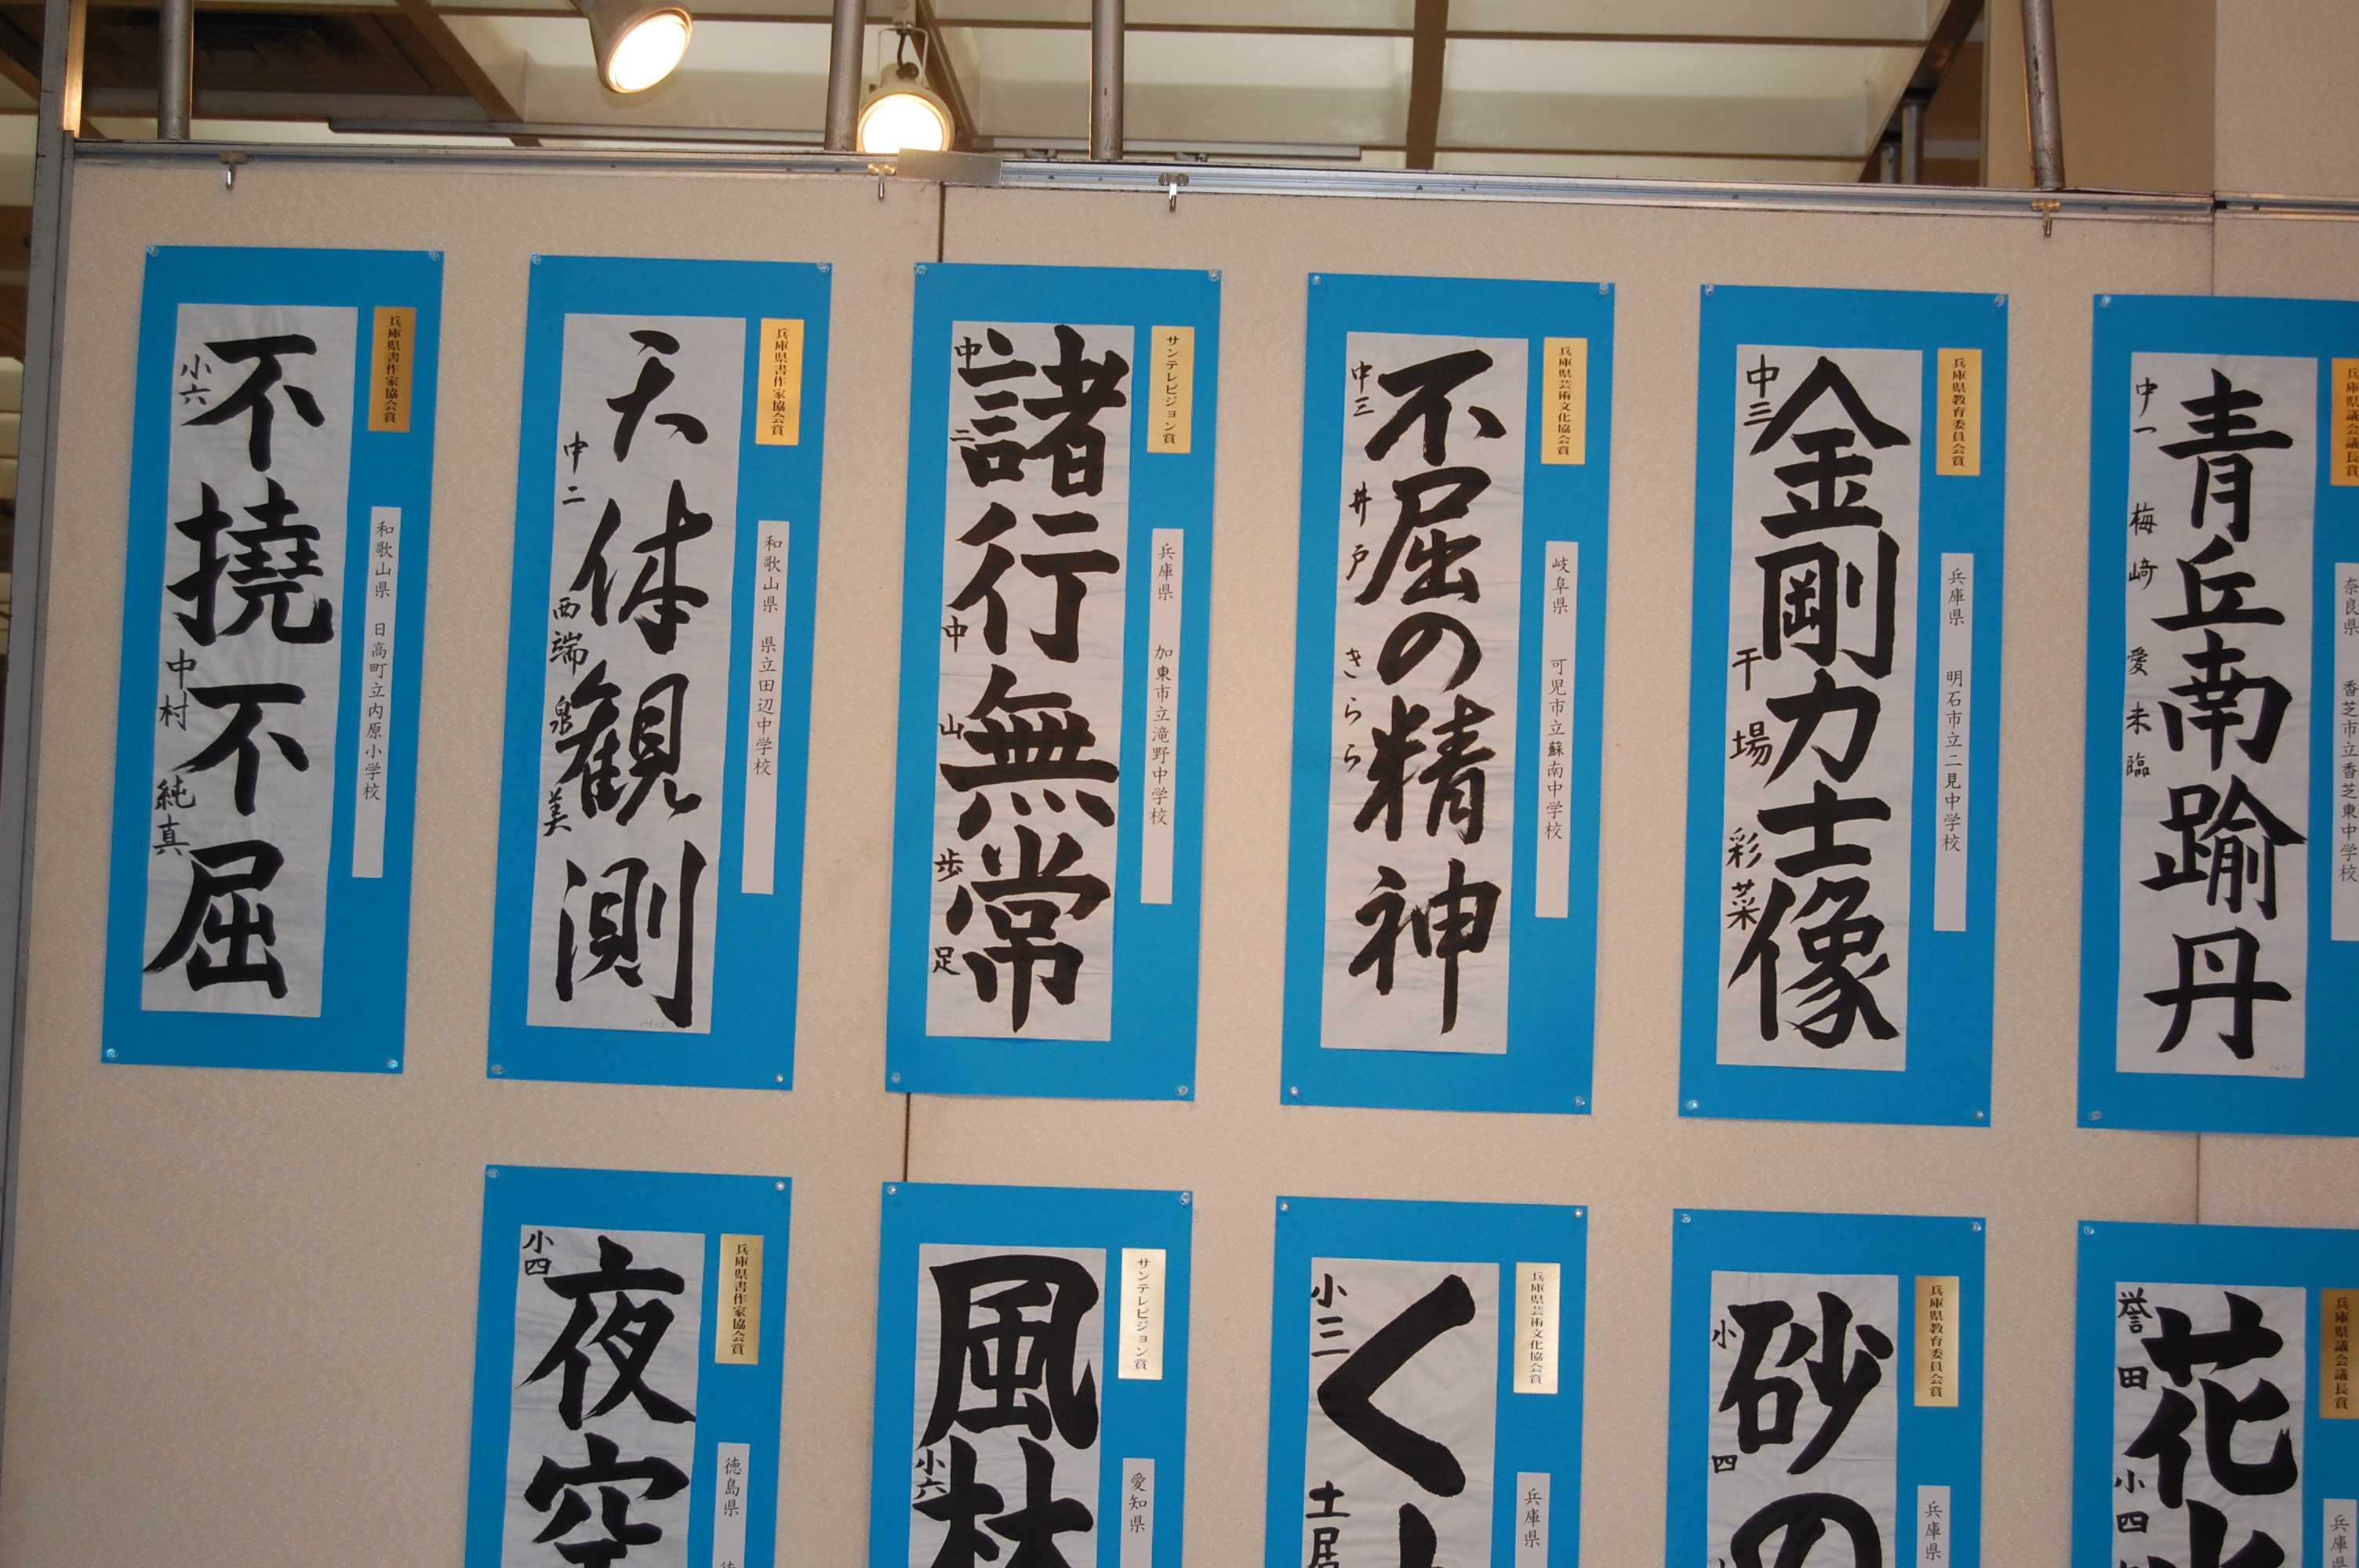 兵庫県議会議長賞
奈良県 香芝市立香芝東中学校
青丘南踰丹
中一 梅﨑 愛未臨
兵庫県教育委員会賞
兵庫県 明石市立二見中学校
金剛力士像
中三 干場 彩菜
兵庫県芸術文化協会賞
岐阜県 可児市立蘇南中学校
不屈の精神
中三 井戸 きらら
サンテレビジョン賞
兵庫県 加東市立滝野中学校
諸行無常
中二 中山 歩足
兵庫県書作家協会賞
和歌山県 県立田辺中学校
天体観測
中二 西端 泉美
兵庫県書作家協会賞
和歌山県 日高町立内原小学校
不撓不屈
小六 中村 純真
兵庫県議会議長賞
兵庫県
花
誉田 小四
兵庫県教育委員会賞
兵庫県
砂の
小四
兵庫県芸術文化協会賞
兵庫県
く
小三 土居
サンテレビジョン賞
愛知県
風林
小六
兵庫県書作家協会賞
徳島県
夜空
小四